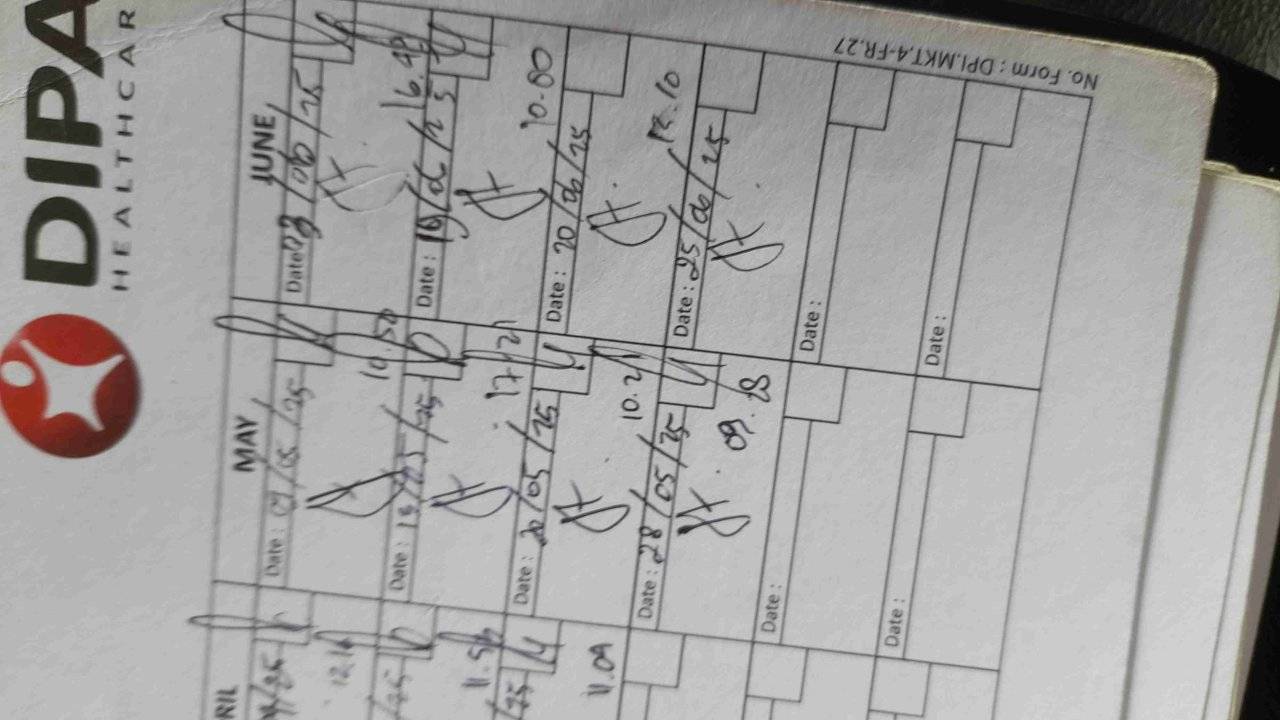 DIPA
HEALTHCAR
RIL
/25
12.16
/25
11.56
/25
11.09
MAY
Date : 07/05/25
10.50
Date : 13/05/25
17.21
Date : 20/05/25
10.21
Date : 28/05/25
09.28
Date :
Date :
JUNE
Date : 03/06/25
16.49
Date : 10/06/25
Date : 20/06/25
Date : 25/06/25
Date :
Date :
No. Form : DPI.MKT.4-FR.27